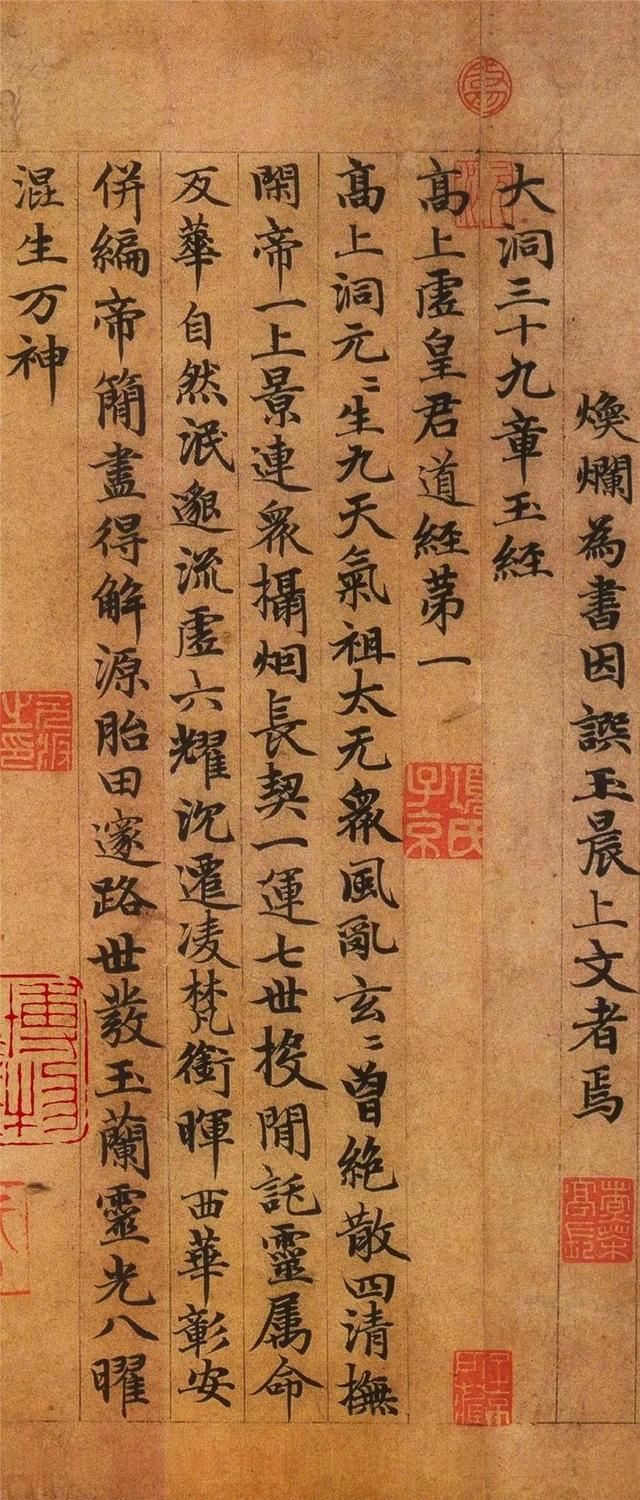 煥爛為書因譔玉晨上文者焉
大洞三十九章玉経
髙上虛皇君道経苐一
髙上洞元〻生九天氣祖太无衆風亂玄〻曾絶散四清撫
閑帝一上景連衆攝烟長契一運七世投閒託靈属命
反華自然泯邈流虛六耀沉遷淩梵衝暉西華彰安
併編帝簡盡得解源胎田邃路世發玉蘭靈光八曜
混生万神
項氏子京